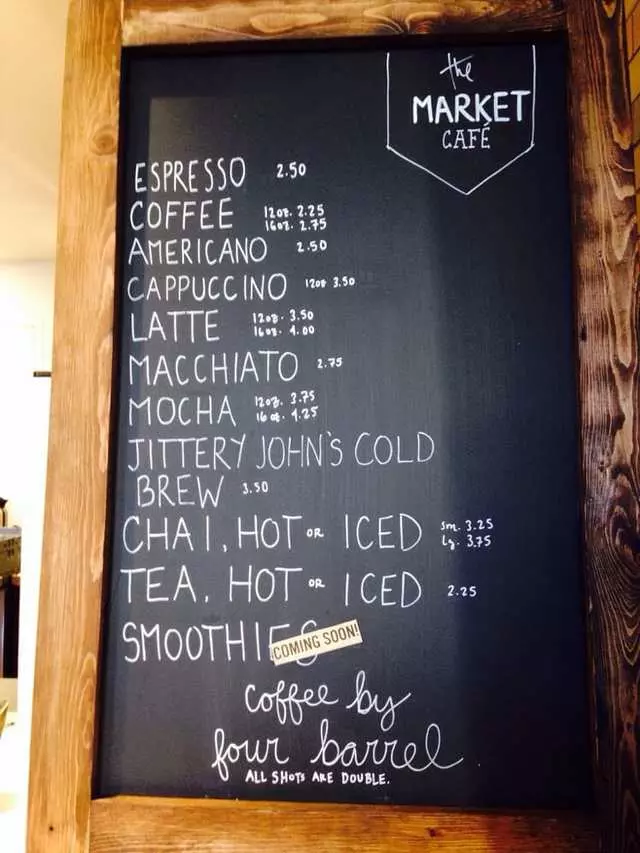 the
MARKET
CAFÉ
ESPRESSO 2.50
COFFEE 12oz. 2.25
16oz. 2.75
AMERICANO 2.50
CAPPUCCINO 12oz 3.50
LATTE 12oz. 3.50
16oz. 4.00
MACCHIATO 2.75
MOCHA 12oz. 3.75
16oz. 4.25
JITTERY JOHN'S COLD
BREW 3.50
CHAI, HOT OR ICED sm. 3.25
lg. 3.75
TEA, HOT OR ICED 2.25
SMOOTHIES
¡COMING SOON!
coffee by
four barrel
ALL SHOTS ARE DOUBLE.